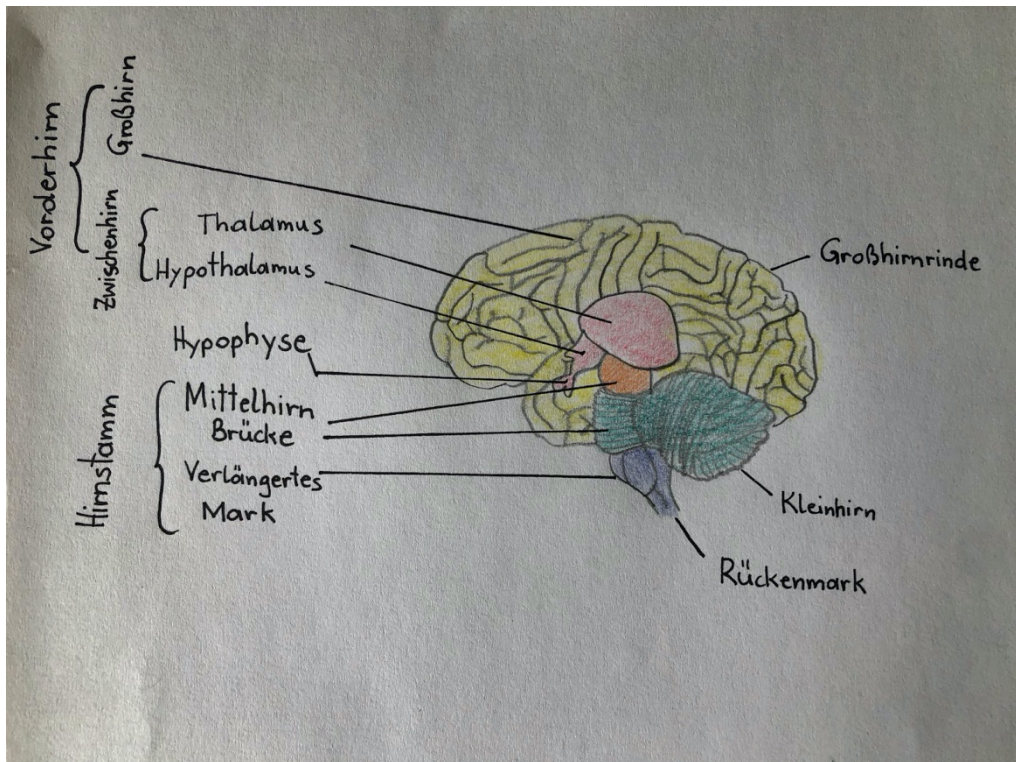 Vorderhirn
Großhirn
Zwischenhirn
Thalamus
Hypothalamus
Hypophyse
Hirnstamm
Mittelhirn
Brücke
Verlängertes
Mark
Großhirnrinde
Kleinhirn
Rückenmark